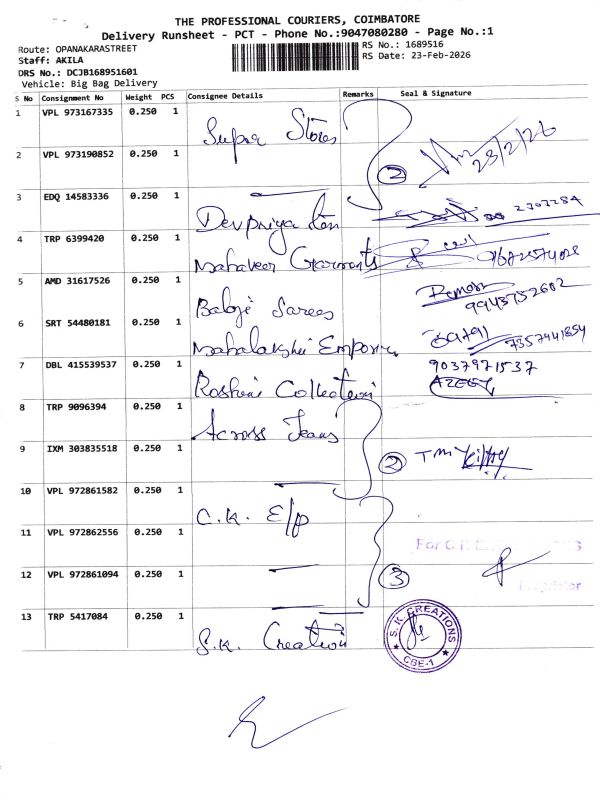 THE PROFESSIONAL COURIERS, COIMBATORE
Delivery Runsheet - PCT - Phone No.:9047080280 - Page No.:1
Route: OPANAKARASTREET
RS No.: 1689516
Staff: AKILA
RS Date: 23-Feb-2026
DRS No.: DCJB168951601
Vehicle: Big Bag Delivery
S No Consignment No Weight PCS Consignee Details Remarks Seal & Signature
1 VPL 973167335 0.250 1 Super Stores
2 VPL 973190852 0.250 1 2 23/2/26
3 EDQ 14583336 0.250 1 Devpriya
4 TRP 6399420 0.250 1 Mahaveer Garments
5 AMD 31617526 0.250 1 Balaji Sarees 9943752602
6 SRT 54480181 0.250 1 Mahalakshmi Emporium 7357441854
7 DBL 415539537 0.250 1 Roshni Collection 9037971537
AZEEZ
8 TRP 9096394 0.250 1 Across Jeans
9 IXM 303835518 0.250 1 2 TM
10 VPL 972861582 0.250 1 C.K. E/p
11 VPL 972862556 0.250 1 For C.K.
12 VPL 972861094 0.250 1 3 Proprietor
13 TRP 5417084 0.250 1 S.K. Creation
S.K. CREATIONS
CBE-1